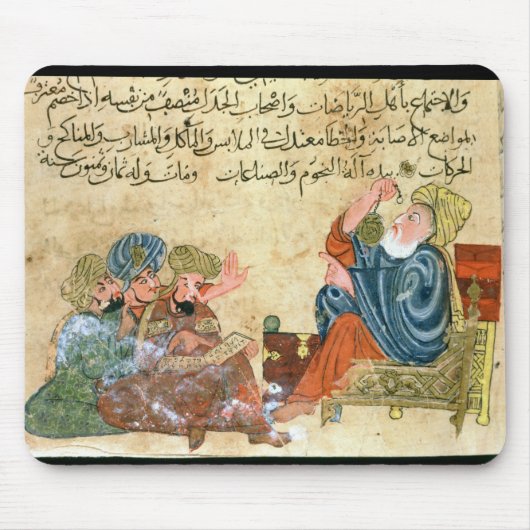 والاجتماع بأهل الرياضات واصحاب الجدل منتصف من نفسه اذا خصم معترف
بمواضع الاصابة والخطا معتدل في الملابس والمآكل والمشارب والمناكح و
الحركات بيده آلة النجوم والصناعات ومات وله ثمان وستون سنة